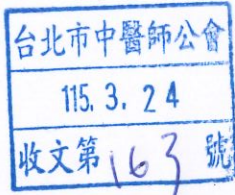 台北市中醫師公會
115. 3. 24
收文第 163 號